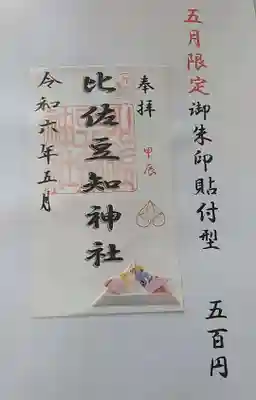 五月限定御朱印貼付型 五百円
奉拝
甲辰
比佐豆知神社
令和六年五月